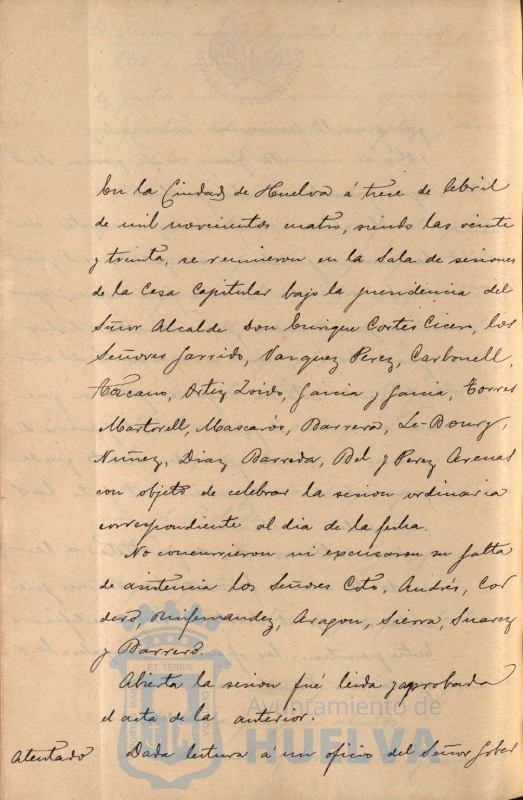 En la Ciudad de Huelva á trece de Abril
de mil novecientos cuatro, siendo las veinte
y treinta, se reunieron en la Sala de sesiones
de la Casa Capitular bajo la presidencia del
Señor Alcalde Don Enrique Cortés Cicero, los
Señores Garrido, Vazquez Perez, Carbonell,
Ortiz Zoido, Garcia y Garcia, Torres
Martorell, Mascarós, Barrera, Le-Bourg,
Nuñez, Diaz Barreda, Bel y Perez Arenas
con objeto de celebrar la sesion ordinaria
correspondiente al dia de la fecha.
No concurrieron ni excusaron su falta
de asistencia los Señores Coto, Andrés, Cor
dero, Ruifernandez, Aragon, Sierra, Suarez
y Barrero.
Abierta la sesion fué leida y aprobada
el acta de la anterior.
Atentado Dada lectura á un oficio del Señor Gober
Ayuntamiento de
HUELVA